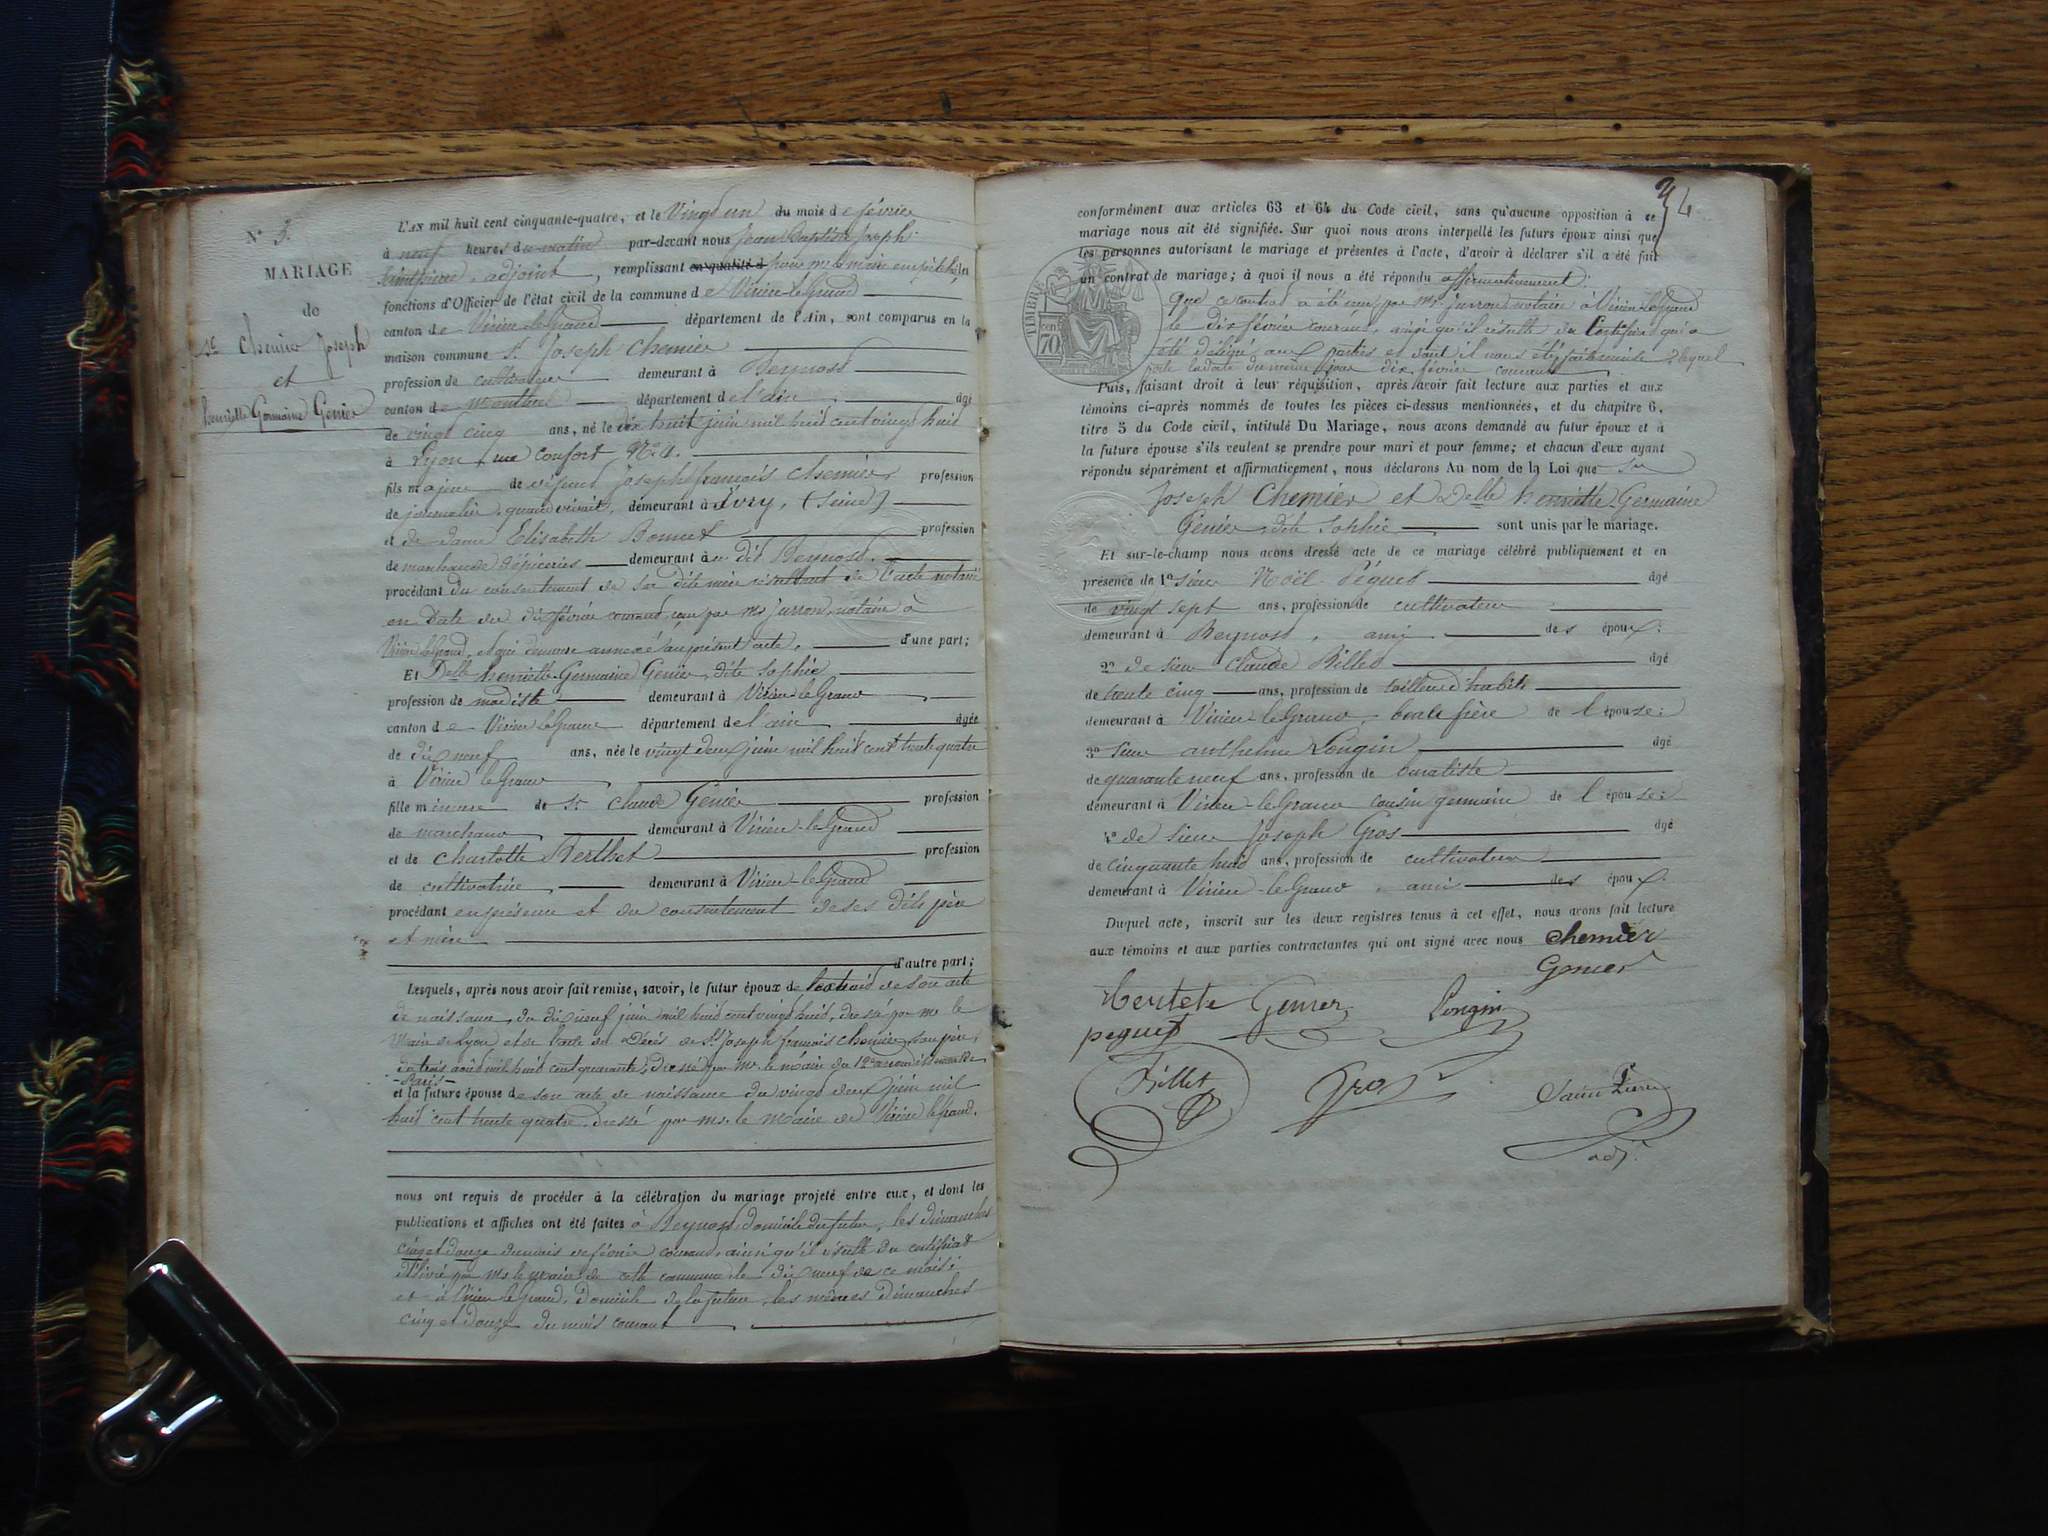 N° 3.
MARIAGE
de
Sr Chemier Joseph
et
henriette Germaine Genier
L'AN mil huit cent cinquante-quatre, et le Vingt un du mois de février
à neuf heures du matin par-devant nous Jean Baptiste Joseph
Saintpierre, adjoint, remplissant en qualité d pour mr le maire empêché, les
fonctions d'Officier de l'état civil de la commune de Virieu-le-Grand
canton de Virieu-le-Grand département de l'Ain, sont comparus en la
maison commune Sr Joseph Chemier
profession de cultivateur demeurant à Beynost
canton de Montluel département de l'ain âgé
de vingt cinq ans, né le dix huit juin mil huit cent vingt huit
à Lyon, rue Confort N°
fils majeur de défunt Joseph françois Chemier, profession
de journalier, quand vivait, demeurant à Ivry, (Seine)
et de dame Elisabeth Bonnet profession
de marchande d'épiceries demeurant au dit Beynost.
procédant du consentement de sa dite mère résultant de l'acte notarié
en date du dix février courant, reçu par me jurron, notaire à
Virieu le Grand, et qui demeure annexé au présent acte, d'une part;
Et Delle henriette Germaine Genier, dite Sophie
profession de modiste demeurant à Virieu-le-Grand
canton de Virieu le Grand département de l'ain âgée
de dix neuf ans, née le vingt deux juin mil huit cent trente quatre
à Virieu le Grand
fille mineure de Sr Claude Génier profession
de marchand demeurant à Virieu-le-Grand
et de Charlotte Berthet profession
de cultivatrice demeurant à Virieu-le-Grand
procédant en présence et du consentement de ses dits père
et mère
d'autre part;
Lesquels, après nous avoir fait remise, savoir, le futur époux de l'extrait de son acte
de naissance, du dix neuf juin mil huit cent vingt huit, dressé par mr le
Maire de Lyon et de l'acte de Décès de Sr Joseph françois Chemier, son père,
du trois août mil huit cent quarante, dressé par mr. le maire du 12e arrondissement de
-Paris-
et la future épouse de son acte de naissance du vingt deux juin mil
huit cent trente quatre dressé par mr. le Maire de Virieu le Grand.
nous ont requis de procéder à la célébration du mariage projeté entre eux, et dont les
publications et affiches ont été faites à Beynost, domicile du futur, les dimanches
cinq et douze du mois de février courant, ainsi qu'il résulte du certificat
délivré par mr le maire de cette commune, le dix neuf de ce mois;
et à Virieu le Grand, Domicile de la future, les mêmes Dimanches
cinq et douze du mois courant
34
conformément aux articles 63 et 64 du Code civil, sans qu'aucune opposition à ce
mariage nous ait été signifiée. Sur quoi nous avons interpellé les futurs époux ainsi que
les personnes autorisant le mariage et présentes à l'acte, d'avoir à déclarer s'il a été fait
un contrat de mariage; à quoi il nous a été répondu affirmativement:
TIMBRE
cen
70
Que ce contrat a été reçu par me. jurron notaire à Virieu-le-Grand
le dix février courant, ainsi qu'il résulte du Certificat qui a
été délivré aux parties et dont il nous a été fait remise, lequel
porte la date du même jour dix février courant
Puis, faisant droit à leur réquisition, après avoir fait lecture aux parties et aux
témoins ci-après nommés de toutes les pièces ci-dessus mentionnées, et du chapitre 6,
titre 5 du Code civil, intitulé Du Mariage, nous avons demandé au futur époux et à
la future épouse s'ils veulent se prendre pour mari et pour femme; et chacun d'eux ayant
répondu séparément et affirmativement, nous déclarons Au nom de la Loi que Sr
Joseph Chemier et Delle henriette Germaine
Génier, dite Sophie sont unis par le mariage.
Et sur-le-champ nous avons dressé acte de ce mariage célébré publiquement et en
présence de 1° sieur Noël Péguet âgé
de vingt sept ans, profession de cultivateur
demeurant à Beynost, ami des époux:
2° de sieur Claude Billet âgé
de trente cinq ans, profession de tailleur d'habits
demeurant à Virieu-le-Grand, beau frère de l'épouse:
3° sieur anthelme Longin âgé
de quarante neuf ans, profession de buraliste
demeurant à Virieu-le-Grand cousin germain de l'épouse:
4° de sieur Joseph Gros âgé
de cinquante huit ans, profession de cultivateur
demeurant à Virieu-le-Grand, ami des époux.
Duquel acte, inscrit sur les deux registres tenus à cet effet, nous avons fait lecture
aux témoins et aux parties contractantes qui ont signé avec nous Chemier
Genier
Bertete Genier Longin
peguet
Billet Gros Saint Pierre
adj.